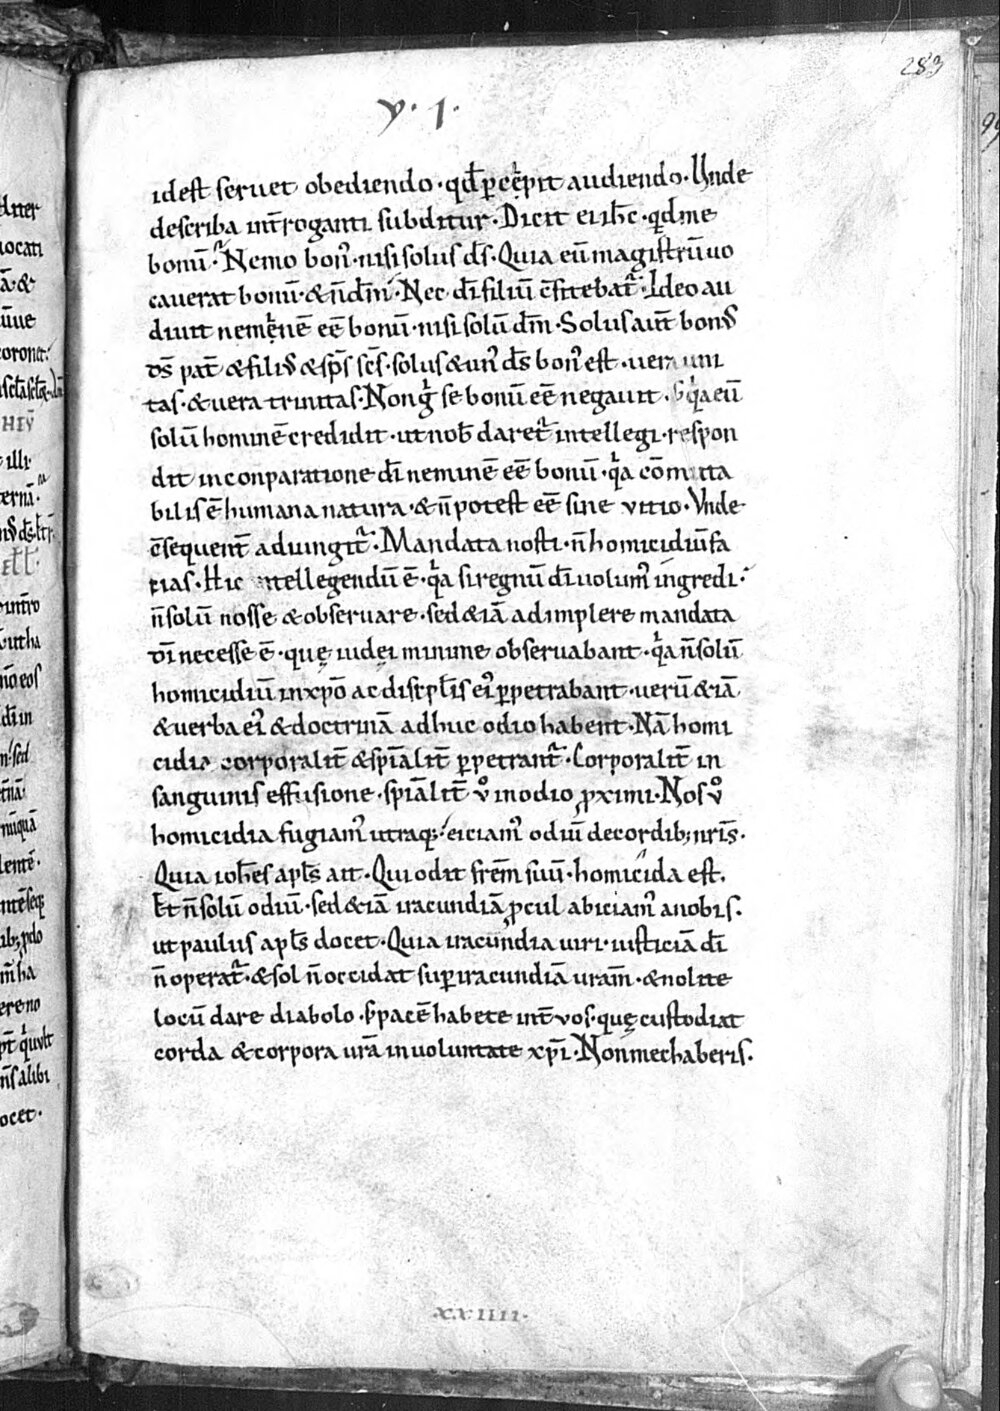 283
V. I.
idest seruet obediendo. qd̄ p̄cep̄it audiendo. Unde
describa int̄roganti subditur. Dicit ei ih̄c. qd me
bonū. Nemo bon᷒. nisi solus d̄s. Quia eū magistrū uo
cauerat bonū. & n̄ d̄m. Nec d̄i filiū c̄fitebat᷑. Ideo au
diuit neminē eē bonū. nisi solū d̄m. Solus aūt bon᷒
d̄s pat̄ & fili᷒ & sp̄s sc̄s. solus & un᷒ d̄s bon᷒ est. uera uni
tas. & uera trinitas. Non gͥ se bonū eē negauit. sͥ qͥa eū
solū hominē credidit. ut nob̄ daret᷑ intellegi. respon
dit inconparatione d̄i neminē eē bonū. qͥa cōmuta
bilis ē humana natura. & n̄ potest eē sine vitio. Vnde
c̄sequent̄ adiungit᷑. Mandata nosti. n̄ homicidiū fa
cias. Hic intellegendū ē. qͥa si regnū d̄i uolum᷒ ingredi.
n̄ solū nosse & obseruare. sed &iā adimplere mandata
d̄i necesse ē. quę iudęi minime obseruabant. qͥa n̄ solū
homicidiū inxp̄o ac discipl̄is ei᷒ ꝑpetrabant. uerū &iā
& uerba ei᷒ & doctrinā adhuc odio habent. Nā homi
cidia corporalit̄ & sp̄ialit̄ ꝑpetrant᷑. Corporalit̄ in
sanguinis effusione. sp̄ialit̄ vͦ inodio ꝓximi. Nos vͦ
homicidia fugiam᷒ utraq;. eiciam᷒ odiū decordib; nr̄is.
Quia ioh̄es apl̄s ait. Qui odit fr̄em suū. homicida est.
Et n̄ solū odiū. sed &iā iracundiā ꝓcul abiciam᷒ anobis.
ut paulus apl̄s docet. Quia iracundia uiri. iusticiā d̄i
n̄ operat᷑. & sol n̄ occidat suꝑ iracundiā uram̄. & nolite
locū dare diabolo. s̄ pacē habete int̄ vos. quę custodiat
corda & corpora ur̄a in uoluntate xp̄i. Non mechaberis.
XXIIII.